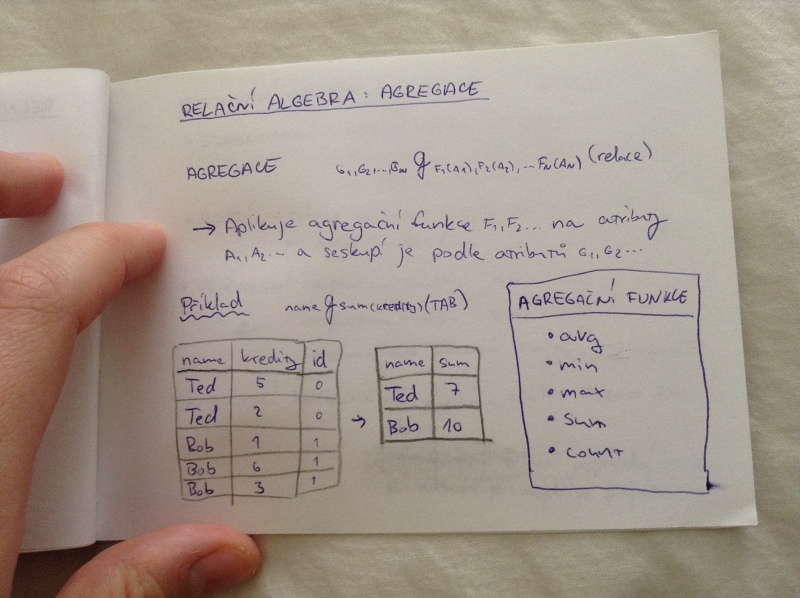 RELAČNÍ ALGEBRA: AGREGACE
AGREGACE G1,G2,...,GN g F1(A1),F2(A2),...FN(AN) (relace)
→ Aplikuje agregační funkce F1,F2... na atributy
A1,A2... a seskupí je podle atributů G1,G2...
Příklad name g sum(kredity)(TAB)
name kredity id
Ted 5 0
Ted 2 0
Bob 1 1
Bob 6 1
Bob 3 1
→
name sum
Ted 7
Bob 10
AGREGAČNÍ FUNKCE
• avg
• min
• max
• sum
• count